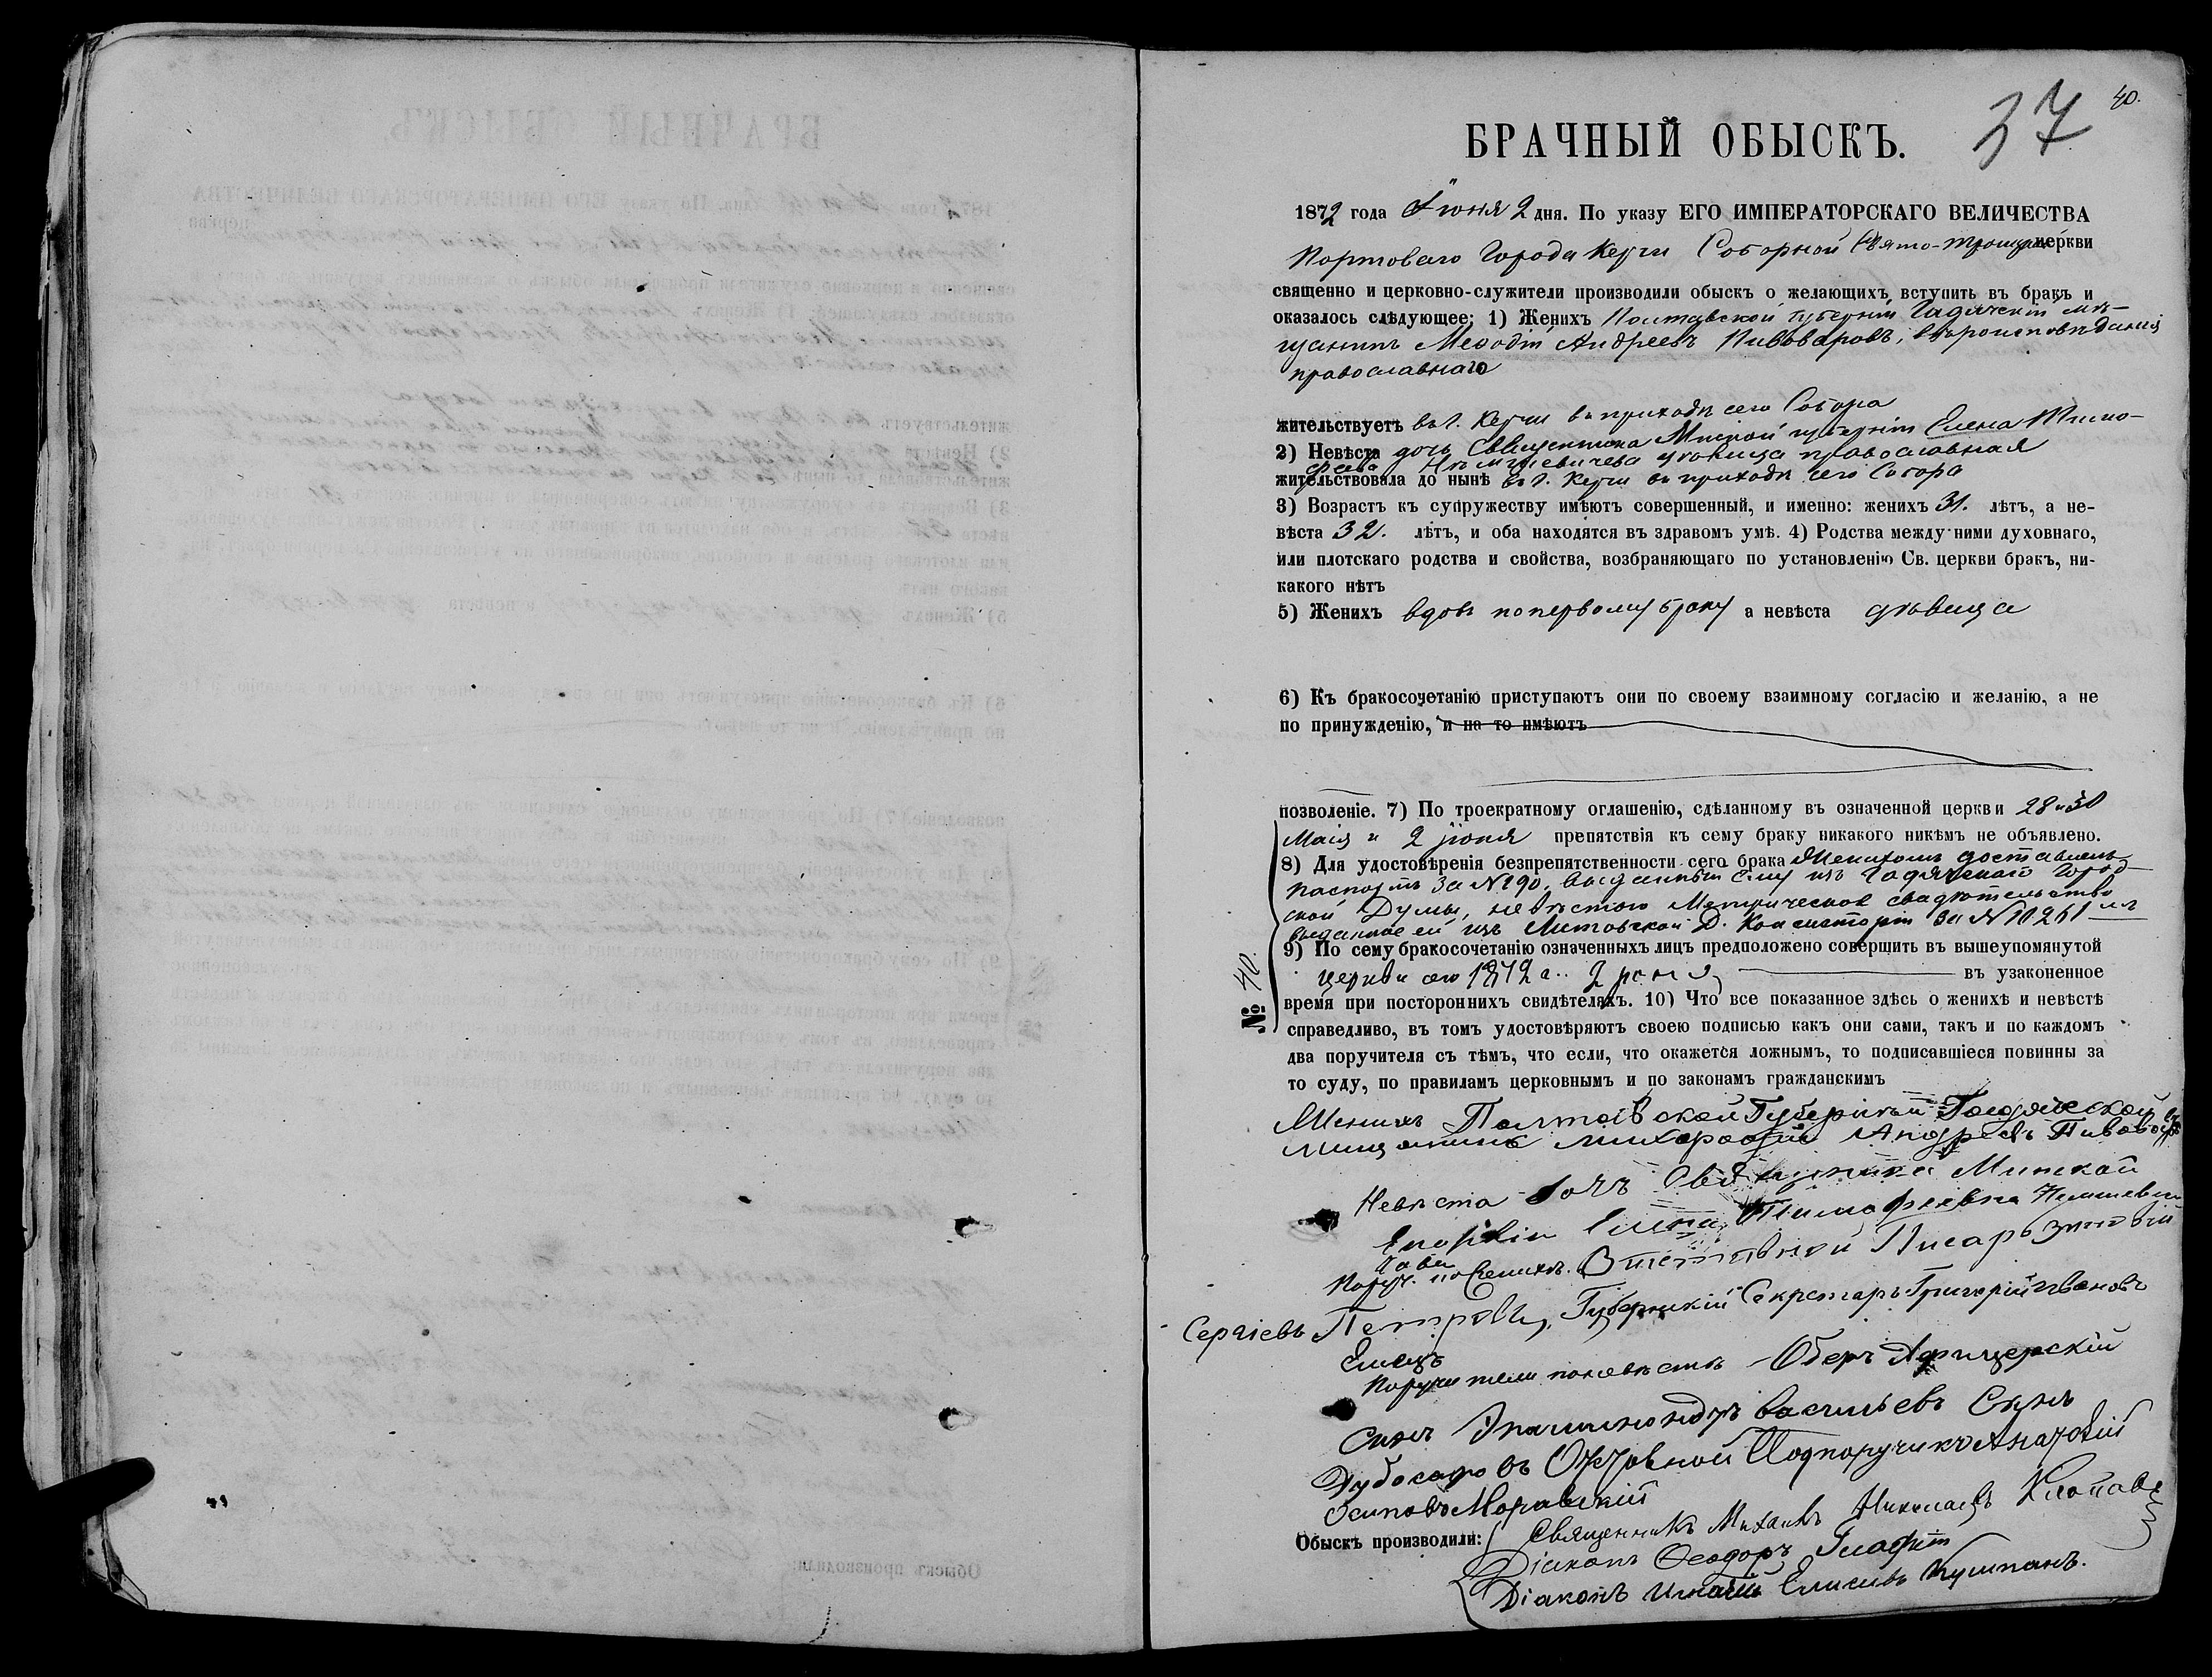 40.
37
БРАЧНЫЙ ОБЫСКЪ.
1872 года Іюня 2 дня. По указу ЕГО ИМПЕРАТОРСКАГО ВЕЛИЧЕСТВА
Портоваго Города Керчи Соборной Свято-Троицкой церкви
священно и церковно-служители производили обыскъ о желающихъ вступить въ бракъ и
оказалось слѣдующее: 1) Женихъ Полтавской губерніи Гадячскій мѣ-
щанинъ Меѳодій Андреевъ Пивоваровъ, вѣроисповѣданія
православнаго
жительствуетъ въ г. Керчи въ приходѣ сего Собора
2) Невѣста дочь Священника Минской губерніи Елена Тимо-
феева дѣвица православная
жительствовала до нынѣ въ г. Керчи въ приходѣ сего Собора
3) Возрастъ къ супружеству имѣютъ совершенный, и именно: женихъ 31. лѣтъ, а не-
вѣста 32. лѣтъ, и оба находятся въ здравомъ умѣ. 4) Родства между ними духовнаго,
или плотскаго родства и свойства, возбраняющаго по установленію Св. церкви бракъ, ни-
какого нѣтъ
5) Женихъ вдовъ по первому браку а невѣста дѣвица
6) Къ бракосочетанію приступаютъ они по своему взаимному согласію и желанію, а не
по принужденію, и на то имѣютъ
позволеніе. 7) По троекратному оглашенію, сдѣланному въ означенной церкви 28 и 30
Маія и 2 іюня препятствія къ сему браку никакого никѣмъ не объявлено.
8) Для удостовѣренія безпрепятственности сего брака Женихомъ доставленъ
паспортъ за № 190, выданный ему изъ Гадячской Город-
ской Думы, невѣстою Метрическое свидѣтельство
выданное ей изъ Литовской Д. Консисторіи за № 10261
9) По сему бракосочетанію означенныхъ лицъ предположено совершить въ вышеупомянутой
церкви сего 1872 г. 2 іюня въ узаконенное
№ 40.
время при постороннихъ свидѣтеляхъ. 10) Что все показанное здѣсь о женихѣ и невѣстѣ
справедливо, въ томъ удостовѣряютъ своею подписью какъ они сами, такъ и по каждомъ
два поручителя съ тѣмъ, что если, что окажется ложнымъ, то подписавшіеся повинны за
то суду, по правиламъ церковнымъ и по законамъ гражданскимъ
Женихъ Полтавской Губерніи Гадячской
Мищанинъ Андреевъ Пивоваровъ
Невѣста дочъ Священика Минской
Епархіи Елена Тимофеевна
Поруч. по Женихѣ. Отставной Писарь Зиновій
Сергіевъ Петровъ, Губернскій Секретарь Григорій Ивановъ
Елецъ
Поручители по невѣстѣ Оберъ Афицерскій
Сынъ Эпаминондъ Васильевъ Сынъ
Дубосаровъ Подпоручикъ Анатолій
Осиповъ Моравскій
Обыскъ производили: Священникъ Михаилъ Николаевъ
Діаконъ Ѳеодоръ
Діаконъ Игнатій Елисеевъ Кушпанъ.